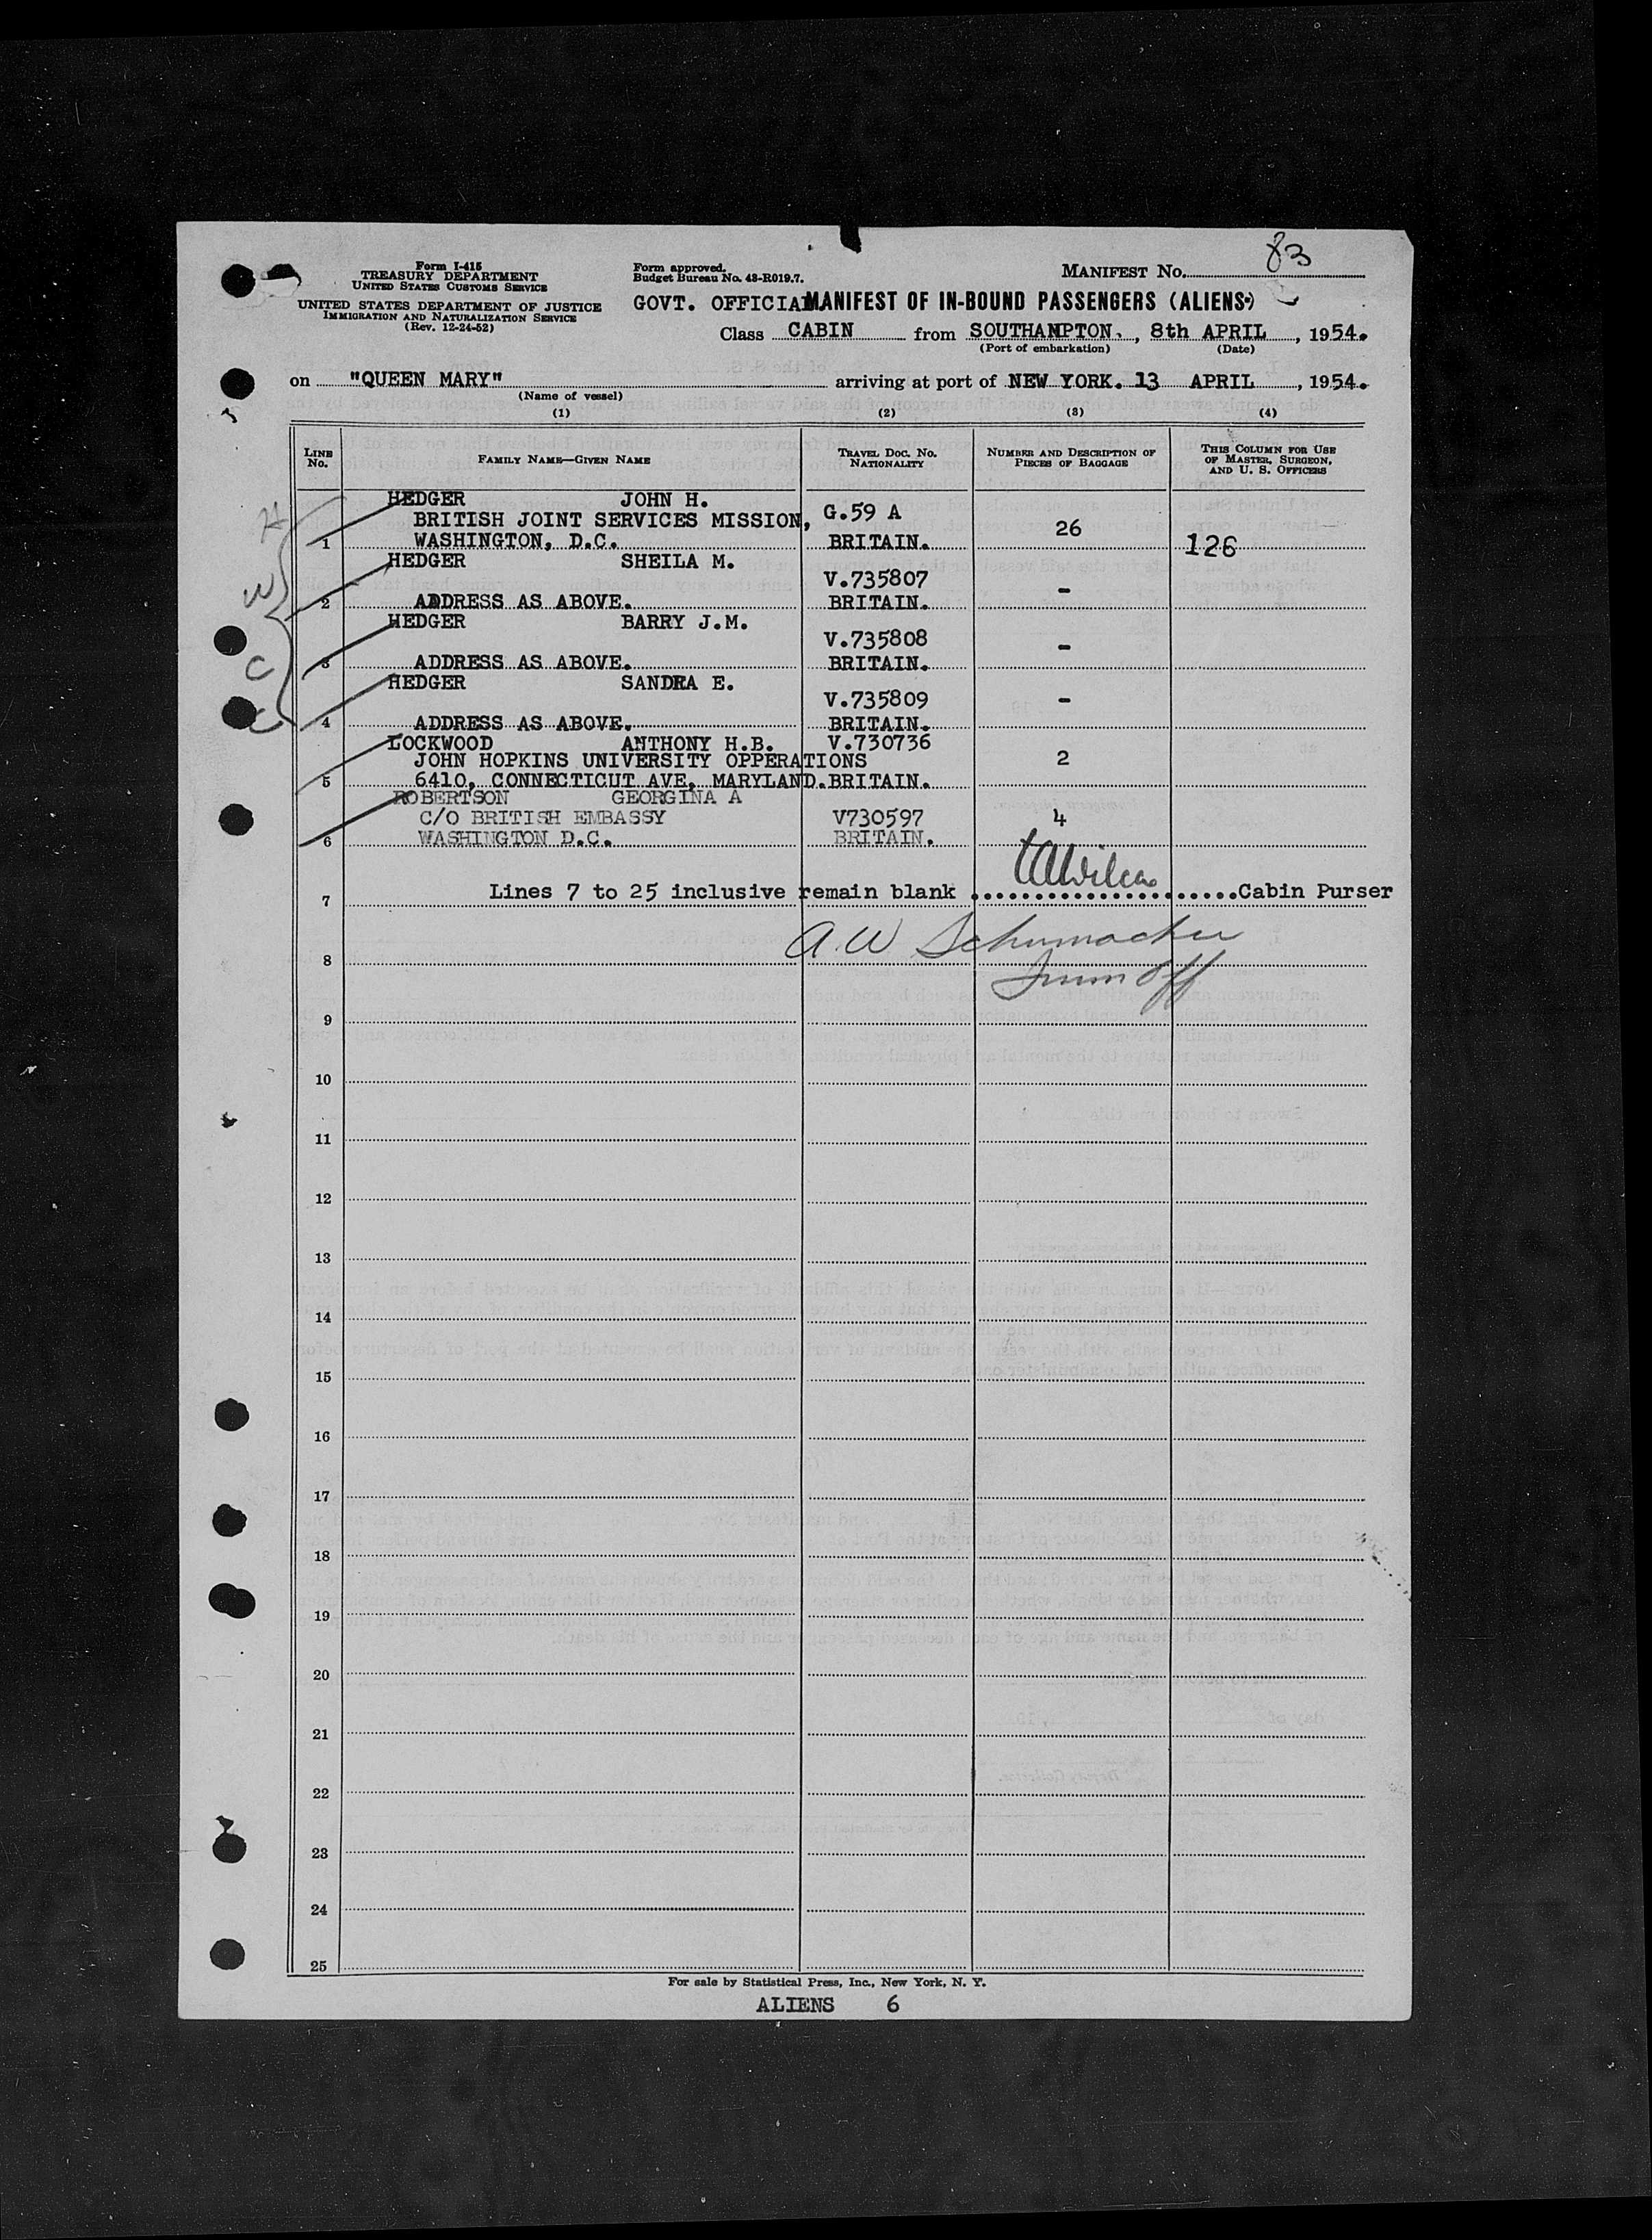 83
Form I-415
TREASURY DEPARTMENT
UNITED STATES CUSTOMS SERVICE
UNITED STATES DEPARTMENT OF JUSTICE
IMMIGRATION AND NATURALIZATION SERVICE
(Rev. 12-24-52)
Form approved.
Budget Bureau No. 43-R019.7.
MANIFEST No.
GOVT. OFFICIAL MANIFEST OF IN-BOUND PASSENGERS (ALIENS)
Class CABIN from SOUTHAMPTON, 8th APRIL, 1954.
(Port of embarkation) (Date)
on "QUEEN MARY" arriving at port of NEW YORK. 13 APRIL, 1954.
(Name of vessel)
(1) (2) (3) (4)
LINE No. FAMILY NAME—GIVEN NAME TRAVEL DOC. NO. NATIONALITY NUMBER AND DESCRIPTION OF PIECES OF BAGGAGE THIS COLUMN FOR USE OF MASTER, SURGEON, AND U. S. OFFICERS
HEDGER JOHN H.
BRITISH JOINT SERVICES MISSION, G.59 A 26
1 WASHINGTON, D.C. BRITAIN. 126
H
HEDGER SHEILA M.
V.735807 -
W
2 ADDRESS AS ABOVE. BRITAIN.
HEDGER BARRY J.M.
V.735808 -
C
3 ADDRESS AS ABOVE. BRITAIN.
HEDGER SANDRA E.
V.735809 -
C
4 ADDRESS AS ABOVE. BRITAIN.
LOCKWOOD ANTHONY H.B. V.730736
JOHN HOPKINS UNIVERSITY OPPERATIONS 2
5 6410, CONNECTICUT AVE, MARYLAND. BRITAIN.
ROBERTSON GEORGINA A
C/O BRITISH EMBASSY V730597 4
6 WASHINGTON D.C. BRITAIN.
7 Lines 7 to 25 inclusive remain blank ....................Cabin Purser
A.W Schumacher
8
Imm Off
9
10
11
12
13
14
15
16
17
18
19
20
21
22
23
24
25
For sale by Statistical Press, Inc., New York, N. Y.
ALIENS 6